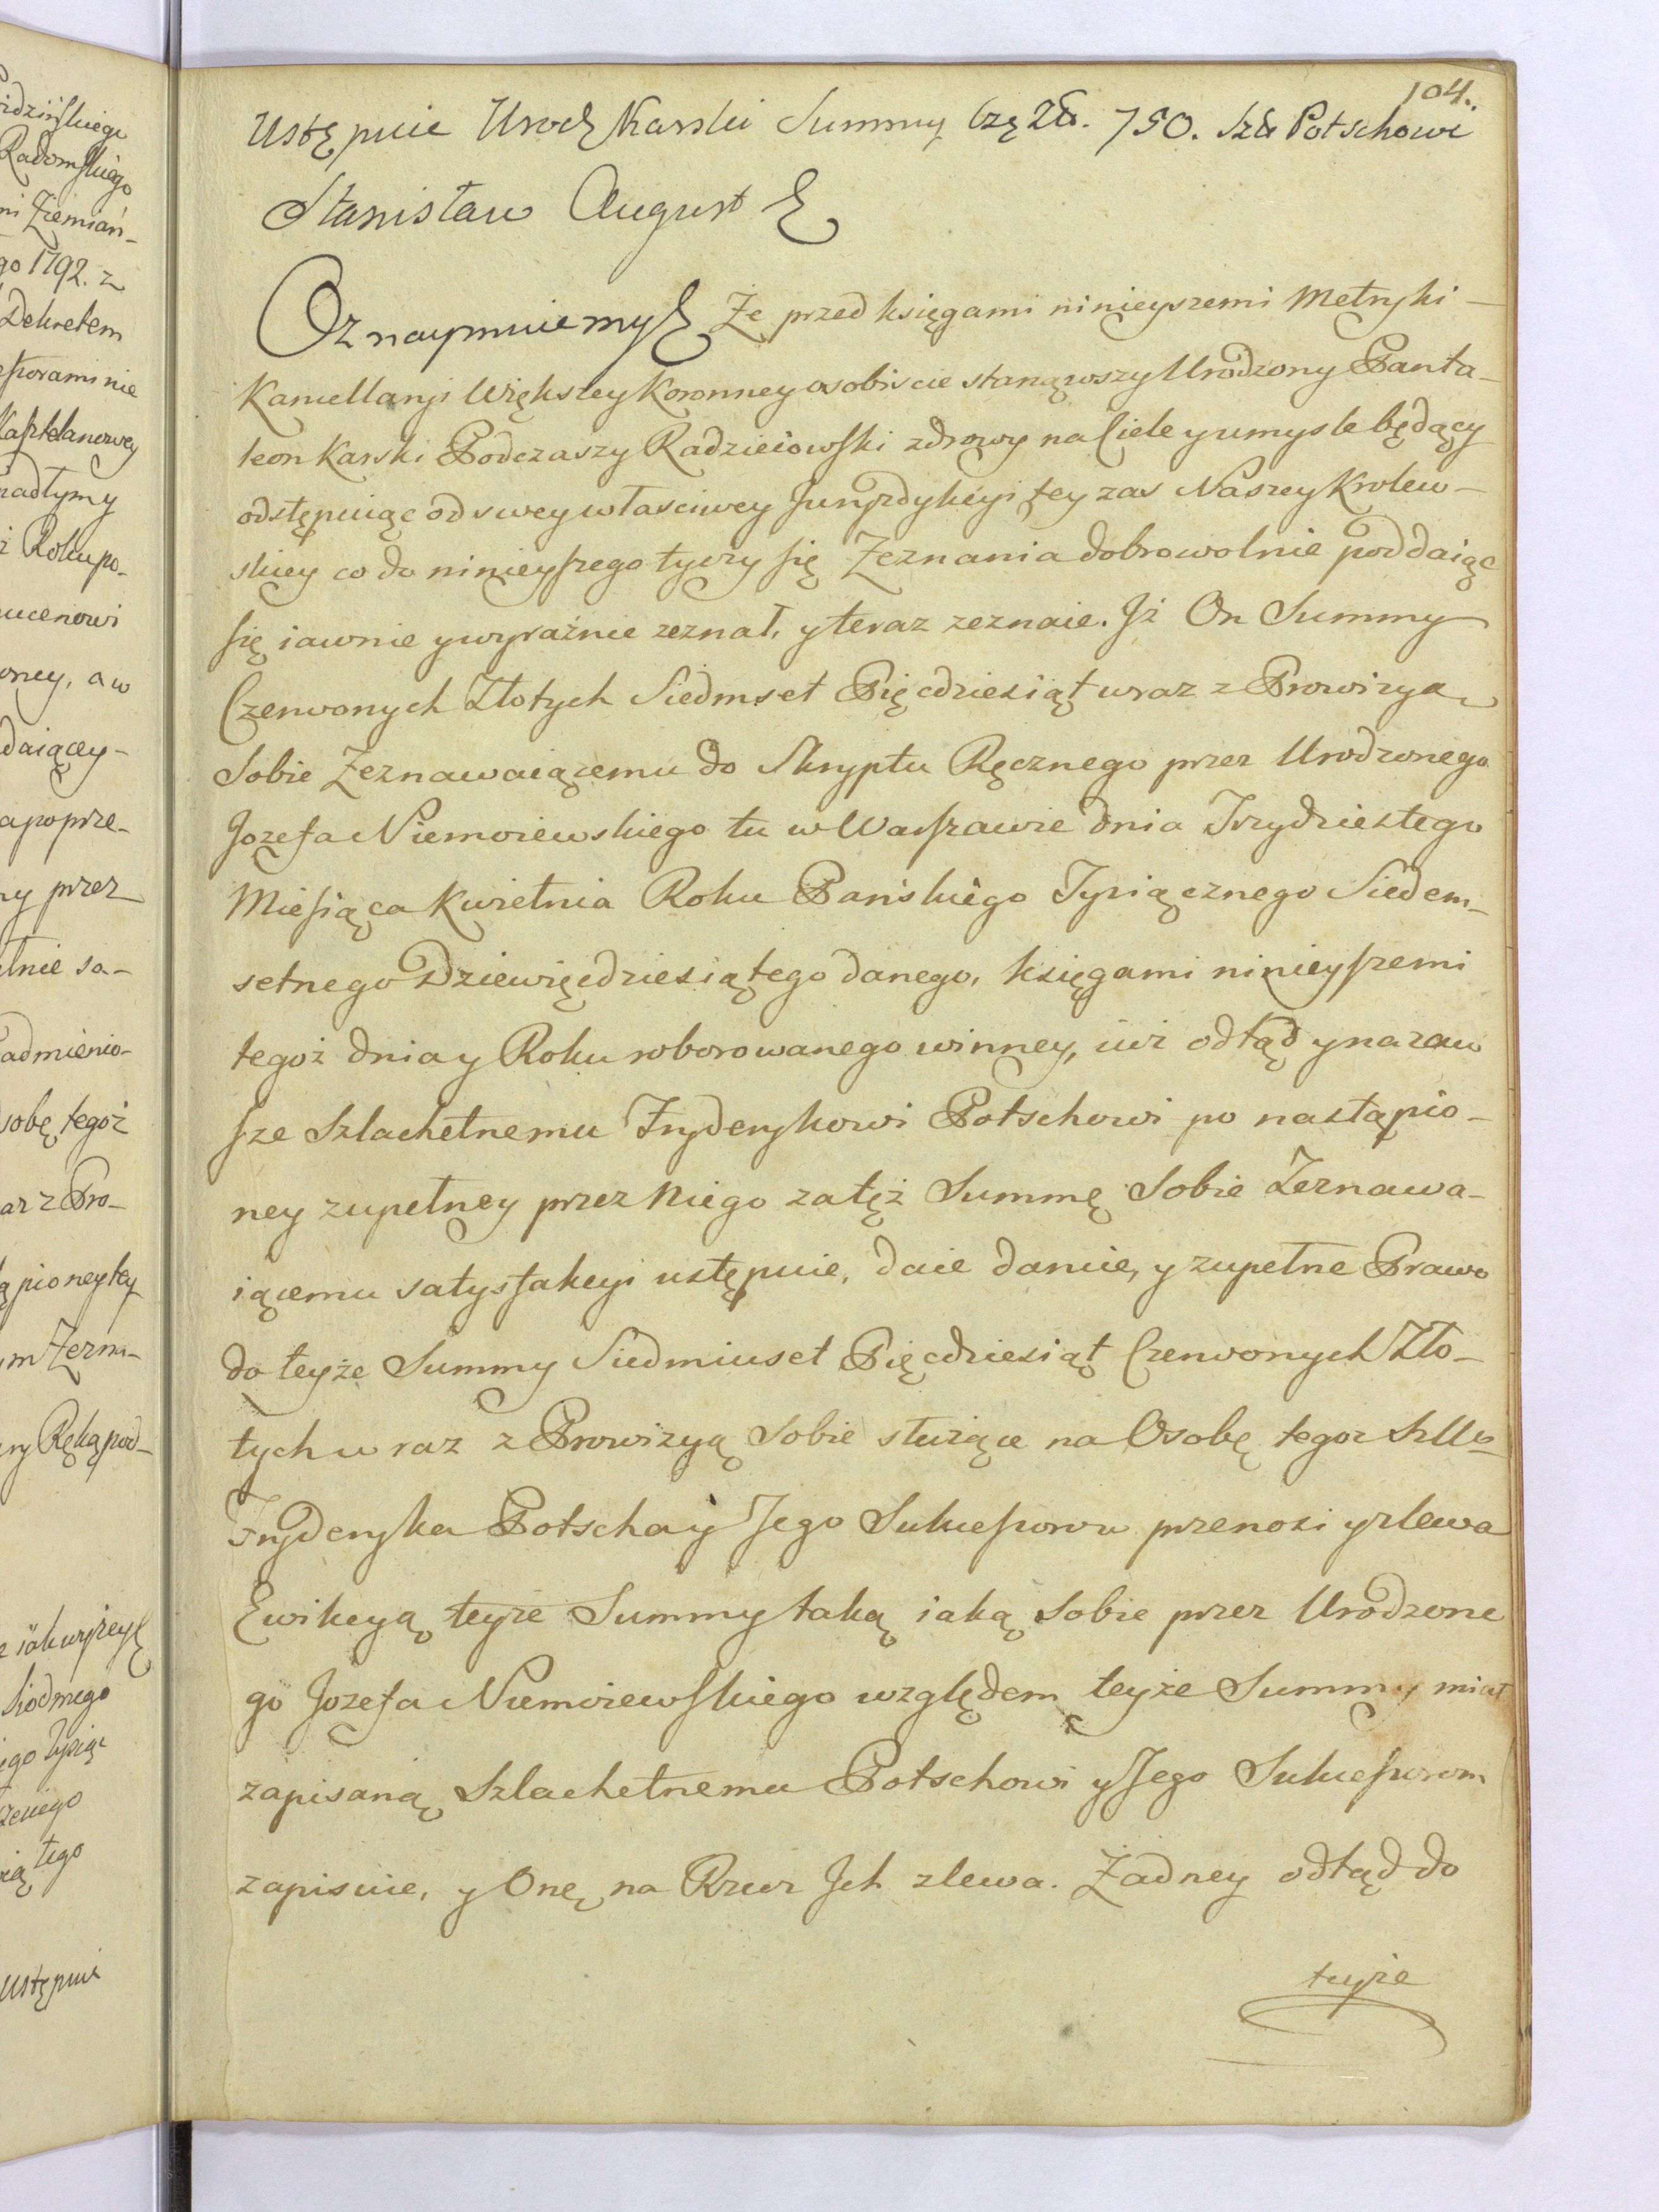 idzińskiego
Radomskiego
ni Ziemiań-
go 1792. z
Dekretem
ssorami nie
Kasztelanowey
nadtym y
i Roku po-
ucenowi
oney, a w
daiącey-
a poprze-
ny przez
etnie sa-
admienio-
sobę tegoż
az z Pro-
ąpioney tey
m Zezna-
ry Ręką pod-
z iak wyżey
Siodmego
ego Tysiąc
iątego
Ustępuie
104.
Ustępuie Urodz Karski Summy Czę Zł. 750. Szl: Potschowi
Stanisław August &
Oznaymuiemy & Że przed księgami ninieyszemi Metryki -
Kancellaryi Większey Koronney osobiscie stanąwszy Urodzony Panta-
leon Karski Podczaszy Radzieiowski zdrowy na Ciele y umysle będący
odstępuiąc od swey własciwey Juryzdykcyi tey zas Naszey Krolew-
skiey co do ninieyszego tyczy się Zeznania dobrowolnie poddaiąc
się iawnie y wyraźnie zeznał, y teraz zeznaie. Iż On Summy
Czerwonych Złotych Siedmset Pięcdziesiąt wraz z Prowizyą
Sobie Zeznawaiącemu do Skryptu Ręcznego przez Urodzonego
Jozefa Niemoiewskiego tu w Warszawie dnia Trzydziestego
Miesiąca Kwietnia Roku Pańskiego Tysiącznego Siedem-
setnego Dziewięcdziesiątego danego, księgami ninieyszemi
tegoż dnia y Roku roborowanego winney, iuż odtąd y na zaw
sze Szlachetnemu Fryderykowi Potschowi po nastąpio-
ney zupełney przez Niego zatęż Summę Sobie Zeznawa-
iącemu satysfakcyi ustępuie, daie daruie, y zupełne Prawo
do teyże Summy Siedmiuset Pięcdziesiąt Czerwonych Zło-
tych wraz z Prowizyą Sobie służące na Osobę tegoż Szllo
Fryderyka Potscha y Jego Sukcessorow przenosi y zlewa
Ewikcyą teyże Summy taką iaką Sobie przez Urodzone
go Jozefa Niemoiewskiego względem teyże Summy miał
zapisaną Szlachetnemu Potschowi y Jego Sukcessorom
zapisuie, y Onę na Rzecz Ich zlewa. Żadney odtąd do
teyże